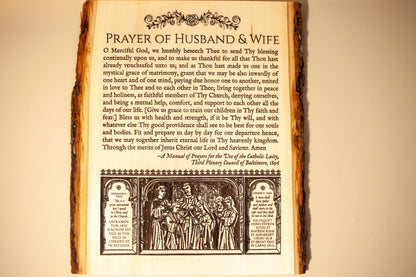 PRAYER OF HUSBAND & WIFE
O Merciful God, we humbly beseech Thee to send Thy blessing
continually upon us, and to make us thankful for all that Thou hast
already vouchsafed unto us; and as Thou hast made us one in the
mystical grace of matrimony, grant that we may be also inwardly of
one heart and of one mind, paying due honor one to another, united
in love to Thee and to each other in Thee; living together in peace
and holiness, as faithful members of Thy Church, denying ourselves,
and being a mutual help, comfort, and support to each other all the
days of our life. [Give us grace to train our children in Thy faith and
fear.] Bless us with health and strength, if it be Thy will, and with
whatever else Thy good providence shall see to be best for our souls
and bodies. Fit and prepare us day by day for our departure hence,
that we may together inherit eternal life in Thy heavenly kingdom.
Through the merits of Jesus Christ our Lord and Saviour. Amen
~A Manual of Prayers for the Use of the Catholic Laity,
Third Plenary Council of Baltimore,
This is a
great sacrament
but I speak
in Christ and
in the
Church.
SACRAMEN
TUM HOC
MAGNUM EST
EGO AUTEM
DICO IN
CHRISTO ET
IN ECCLESIA